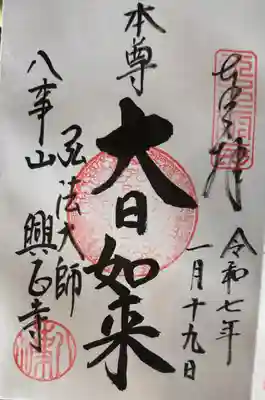 奉拝
令和七年
一月十九日
本尊
大日如来
弘法大師
八事山
興正寺